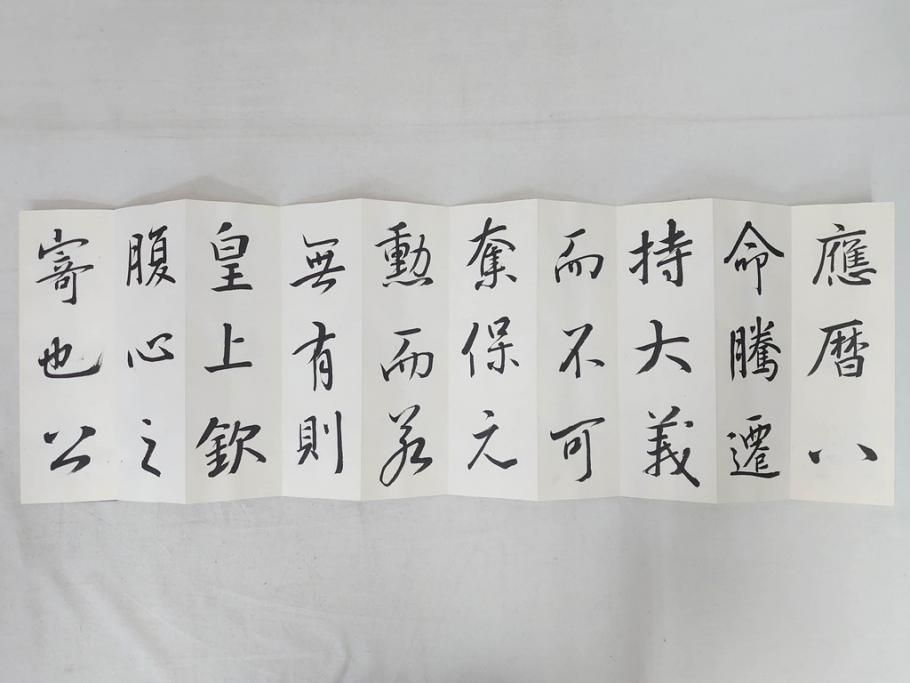 應曆八
命騰遷
持大義
而不可
奪保元
勳而若
無有則
皇上欽
腹心之
寄也公